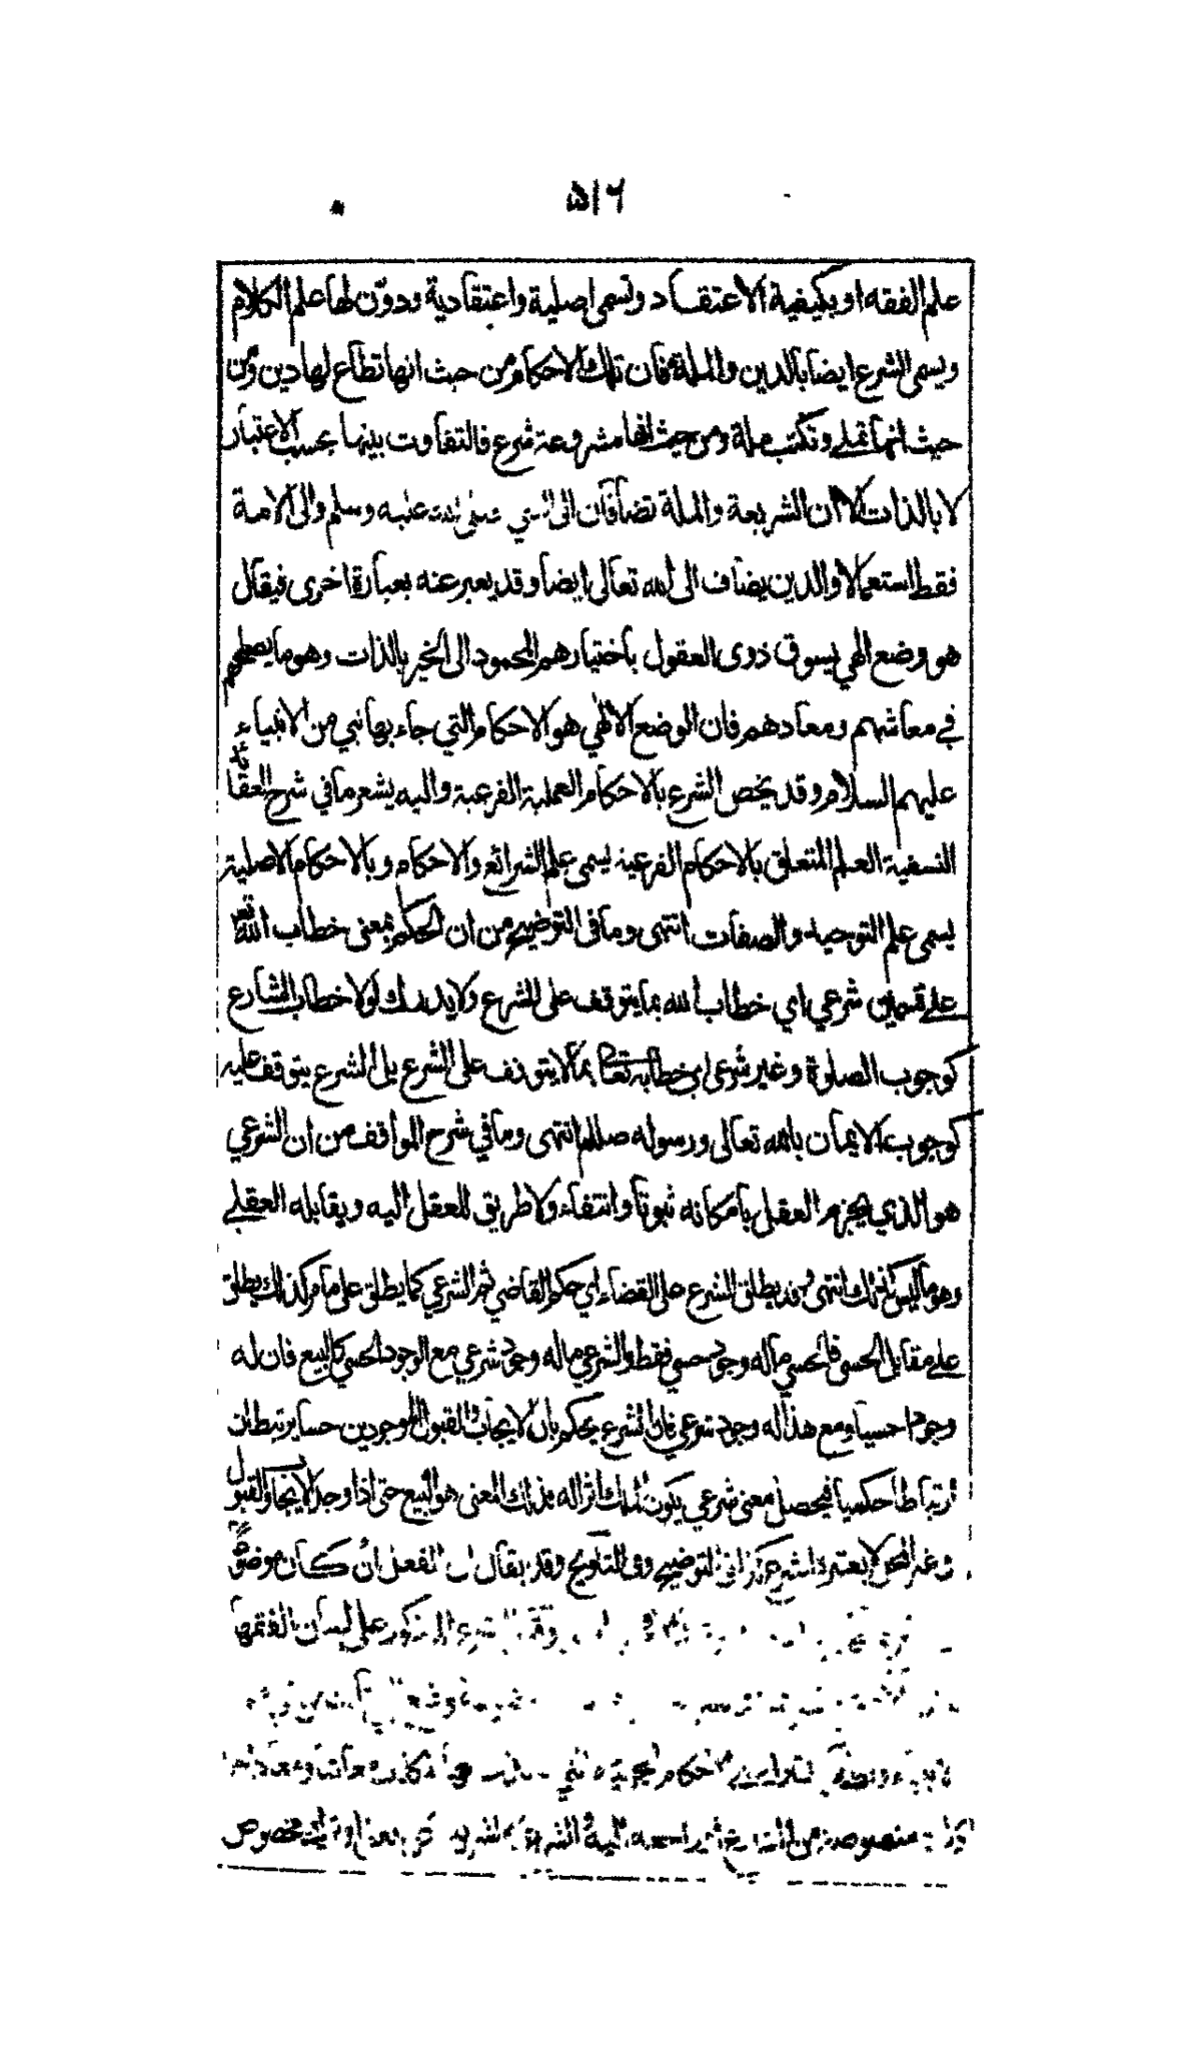 ٥١٦
علم الفقه او بكيفية الاعتقاد وتسمى اصلية واعتقادية ودوّن لها علم الكلام
ويسمى الشرع ايضا بالدين والملة فان تلك الاحكام من حيث انها تطاع لها دين ومن
حيث انها تملى وتكتب ملة ومن حيث انها مشروعة شرع فالتفاوت بينها بحسب الاعتبار
لا بالذات الا ان الشريعة والملة تضافان الى النبي صلى الله عليه وسلم والى الامة
فقط استعمالا والدين يضاف الى الله تعالى ايضا وقد يعبر عنه بعبارة اخرى فيقال
هو وضع الهي يسوق ذوى العقول باختيارهم المحمود الى الخير بالذات وهو ما يصلحهم
في معاشهم ومعادهم فان الوضع الالهي هو الاحكام التي جاء بها نبي من الانبياء
عليهم السلام وقد يخص الشرع بالاحكام العملية الفرعية واليه يشعر ما في شرح العقائد
النسفية العلم المتعلق بالاحكام الفرعية يسمى علم الشرائع والاحكام وبالاحكام الاصلية
يسمى علم التوحيد والصفات انتهى وما في التوضيح من ان الحكم بمعنى خطاب الله تع
على قسمين شرعي اي خطاب الله بما يتوقف على الشرع ولا يدرك لولا خطاب الشارع
كوجوب الصلوة وغير شرعي اي خطابه تعالى بما لا يتوقف على الشرع بل الشرع يتوقف عليه
كوجوب الايمان بالله تعالى ورسوله صللم انتهى وما في شرح المواقف من ان الشرعي
هو الذي يجزم العقل بامكانه ثبوتا وانتفاء ولا طريق للعقل اليه ويقابله العقلي
وهو ما ليس كذلك انتهى وقد يطلق الشرع على القضاء اي حكم القاضي ثم الشرعي كما يطلق على ما مر كذلك يطلق
على مقابل الحسي فالحسي ما له وجود حسي فقط والشرعي ما له وجود شرعي مع الوجود الحسي كالبيع فان له
وجودا حسيا ومع هذا له وجود شرعي فان الشرع يحكم بان الايجاب والقبول الموجودين حسا يرتبطان
ارتباطا حكميا فيحصل معنى شرعي يكون الملك اثرا له فذلك المعنى هو البيع حتى اذا وجد الايجاب والقبول
وغير المحل لا يعتبره الشرع كذا في التوضيح وفي التلويح وقد يقال ان الفعل ان كان موضوعا
الشرع المذكور على لسان الفقهاء
احكام
منصوصة من الشارع مخصوص